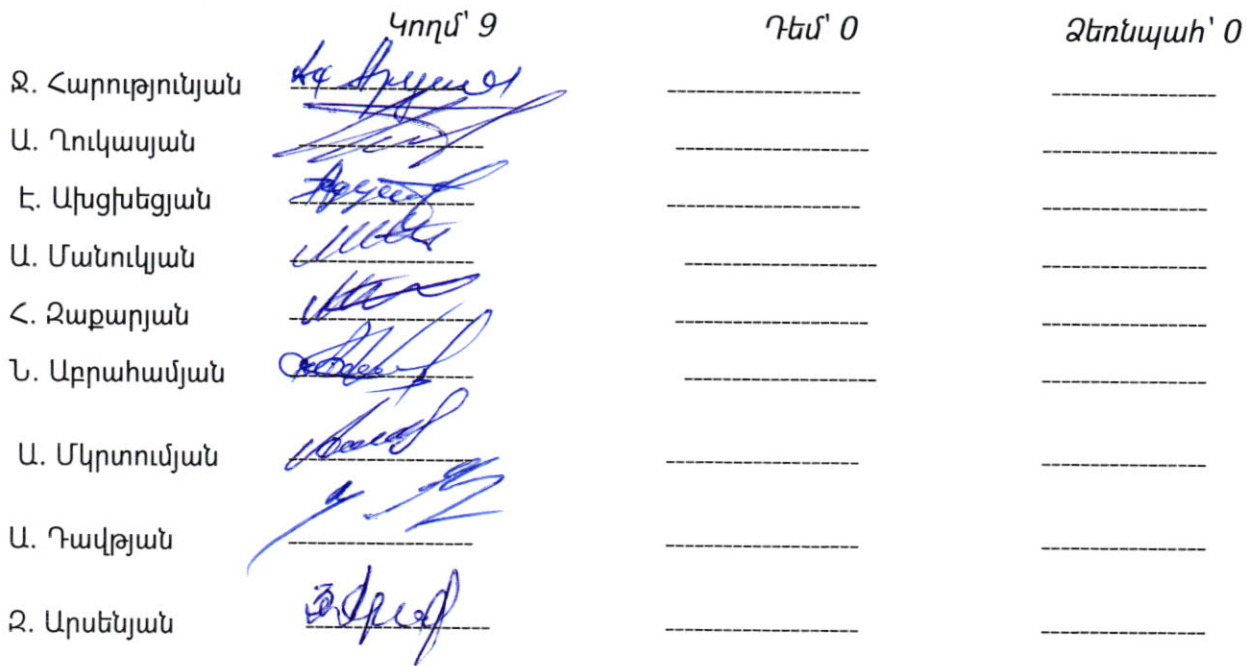 Կողմ՝ 9 Դեմ՝ 0 Ձեռնպահ՝ 0
Ջ. Հարությունյան
Ա. Ղուկասյան
Է. Ախցխեցյան
Ա. Մանուկյան
Հ. Զաքարյան
Ն. Աբրահամյան
Ա. Մկրտումյան
Ա. Դավթյան
Զ. Արսենյան